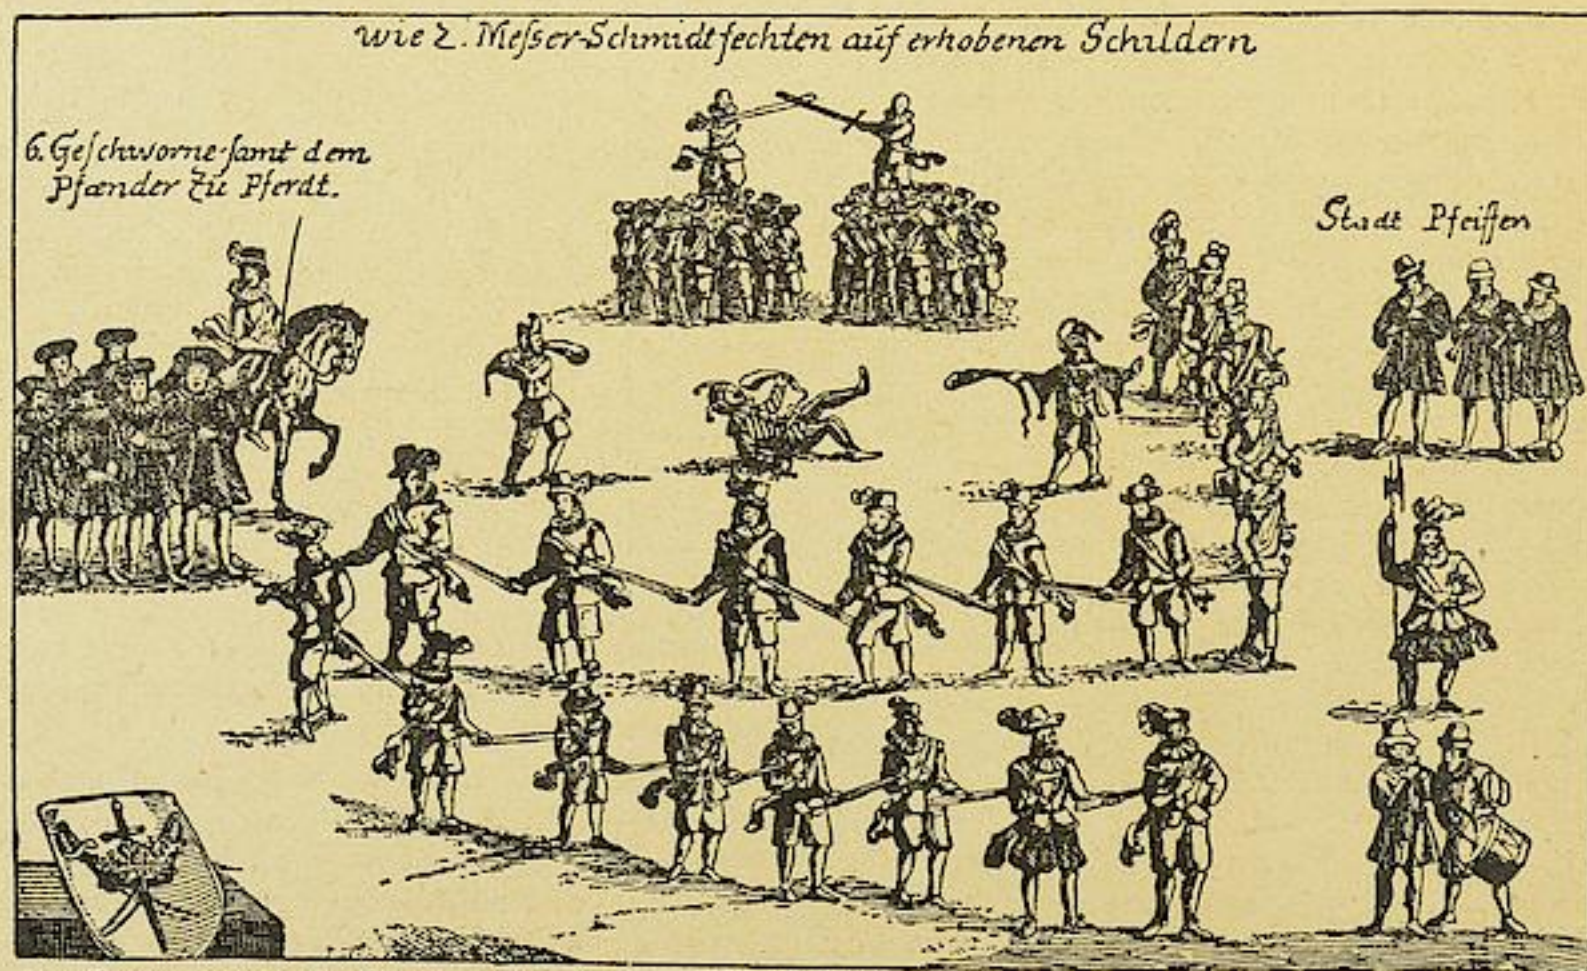 wie 2. Messer-Schmidt fechten auf erhobenen Schildern
6. Geschworne samt dem
Pfænder zu Pferdt.
Stadt Pfeiffen